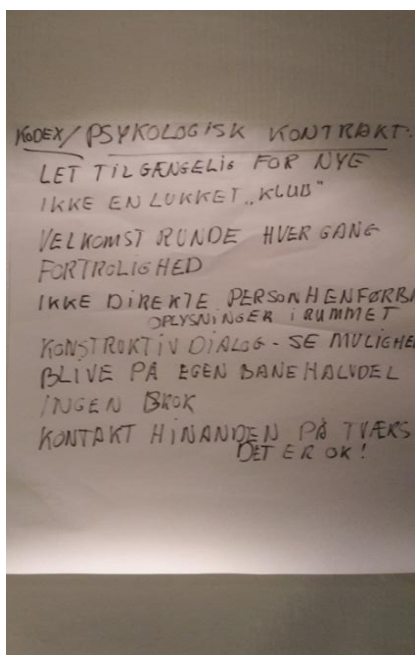 KODEX/PSYKOLOGISK KONTRAKT.
LET TILGÆNGELIG FOR NYE
IKKE EN LUKKET „KLUB"
VELKOMST RUNDE HVER GANG
FORTROLIGHED
IKKE DIREKTE PERSONHENFØRBA
OPLYSNINGER i RUMMET
KONSTRUKTIV DIALOG - SE MULIGHE
BLIVE PÅ EGEN BANEHALVDEL
INGEN BROK
KONTAKT HINANDEN PÅ TVÆRS
DET ER OK!